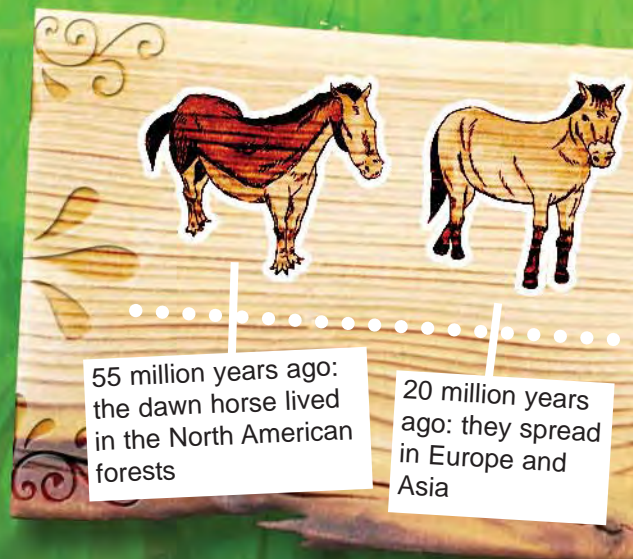 55 million years ago:
the dawn horse lived
in the North American
forests
20 million years
ago: they spread
in Europe and
Asia